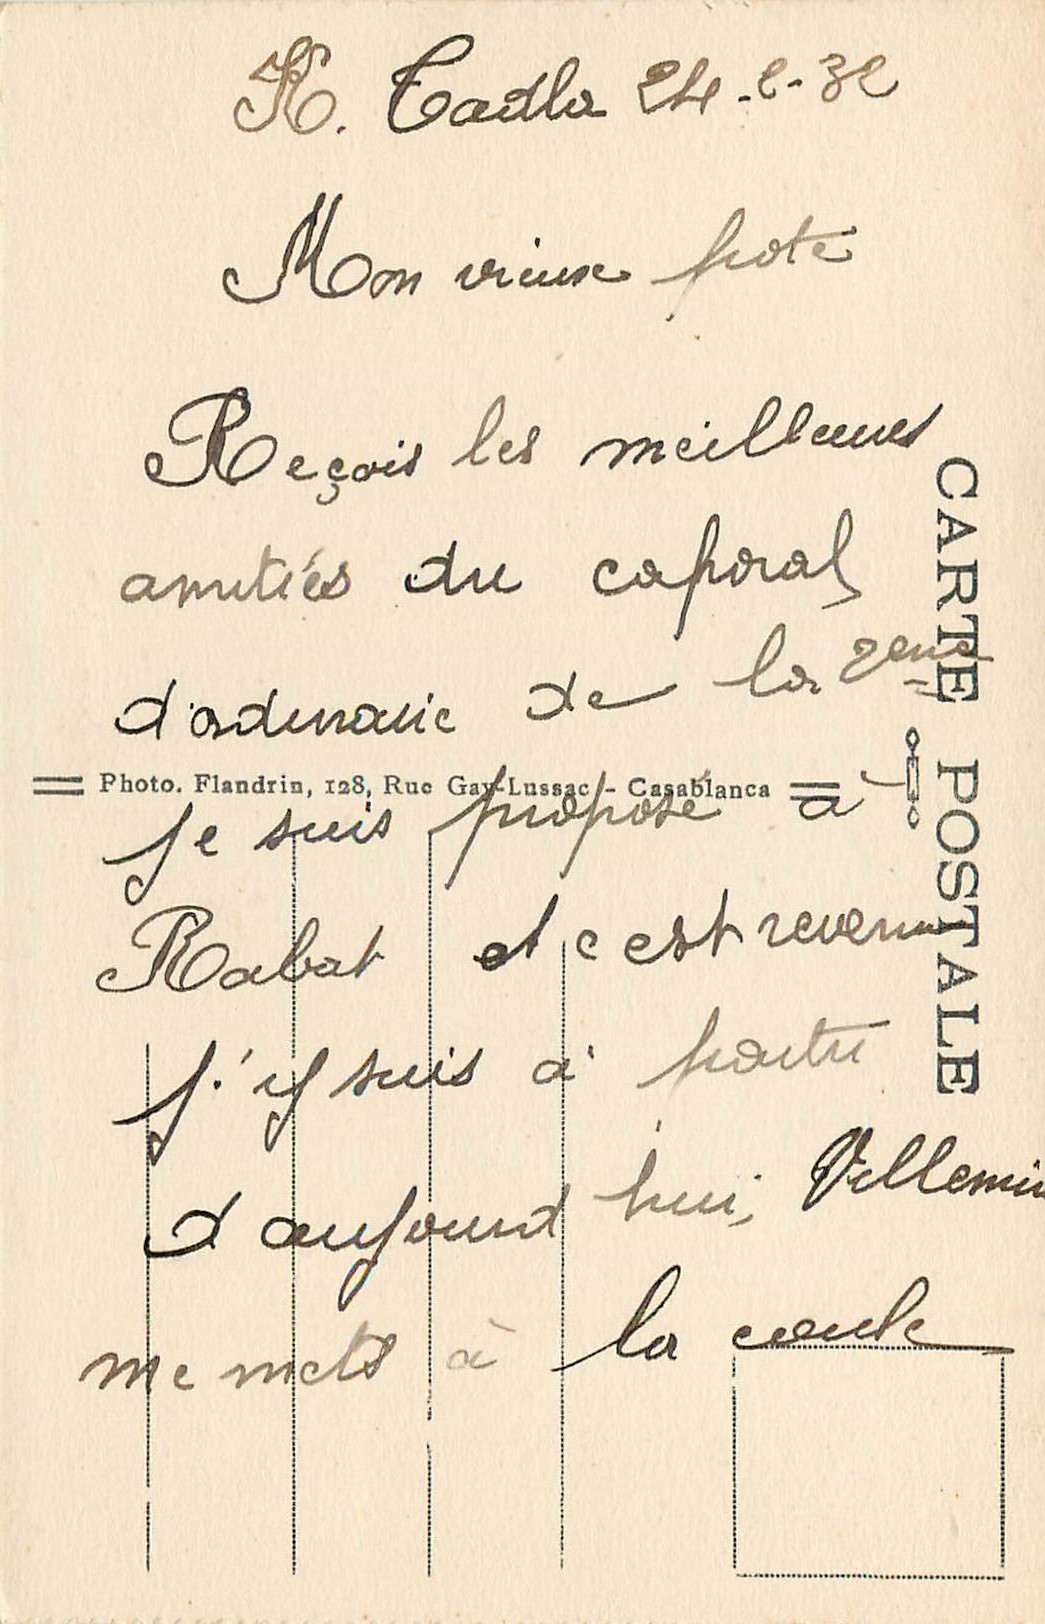 K. Tadla 24-2-32
Mon vieux pote
Reçois les meilleures
amitiés du caporal
d'ordinaire de la 2eme
Photo. Flandrin, 128, Rue Gay-Lussac - Casablanca
je suis proposé à
Rabat et c est revenu
j'y suis à partir
d aujourd hui, Villemin
me mets à la coule
CARTE POSTALE